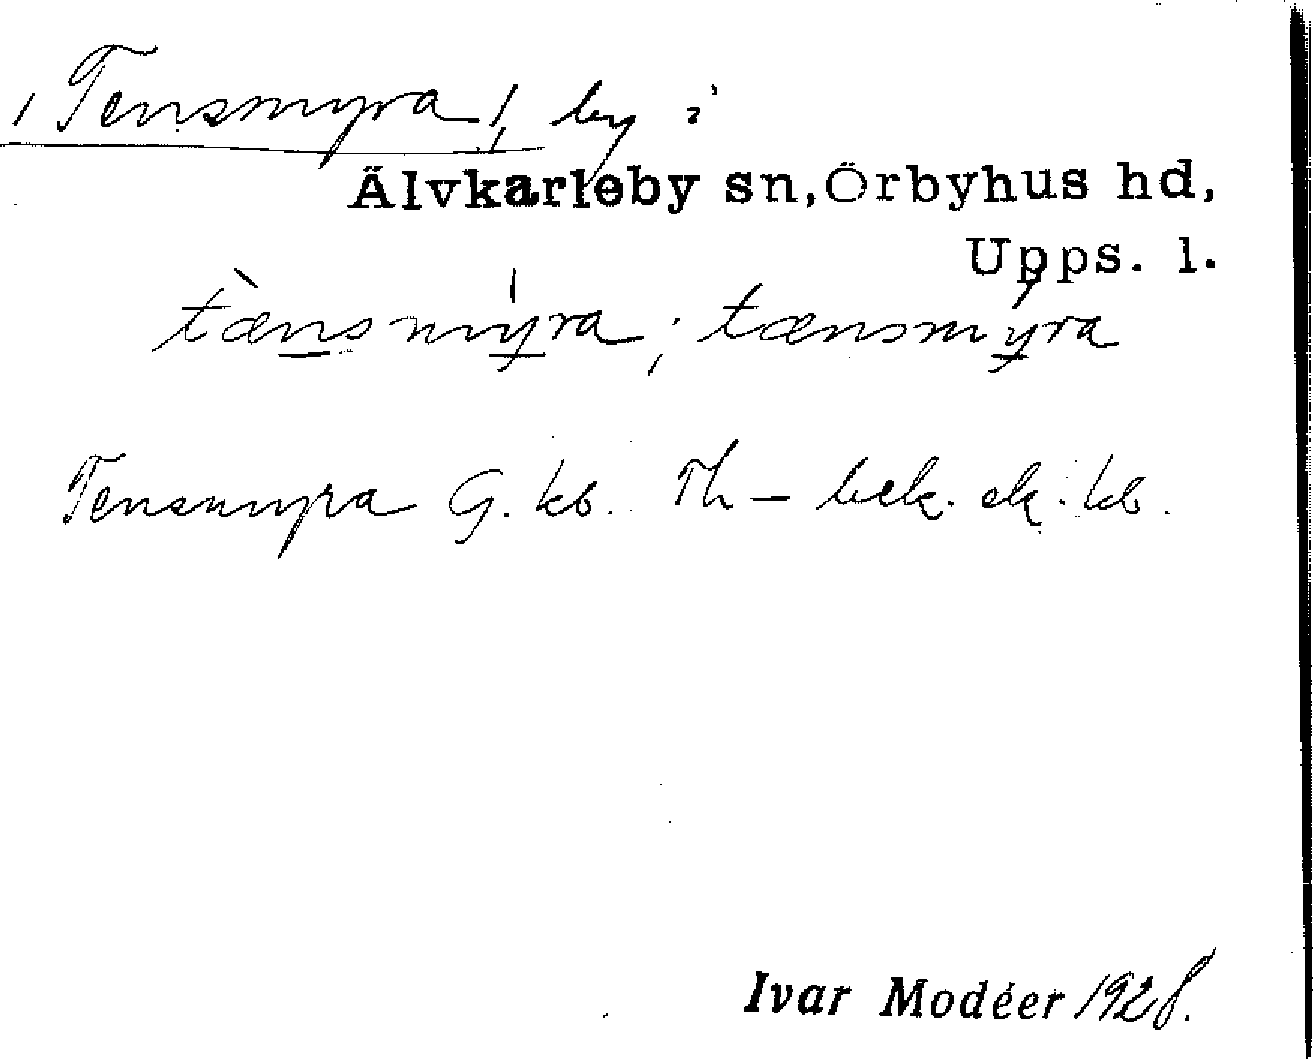 /Tensmyra/, by i
Älvkarleby sn, Örbyhus hd,
Upps. l.
tænsmýra; tænsmýra
Tensmyra G. kb. Th– bek. ek. kb.
Ivar Modéer 1928.